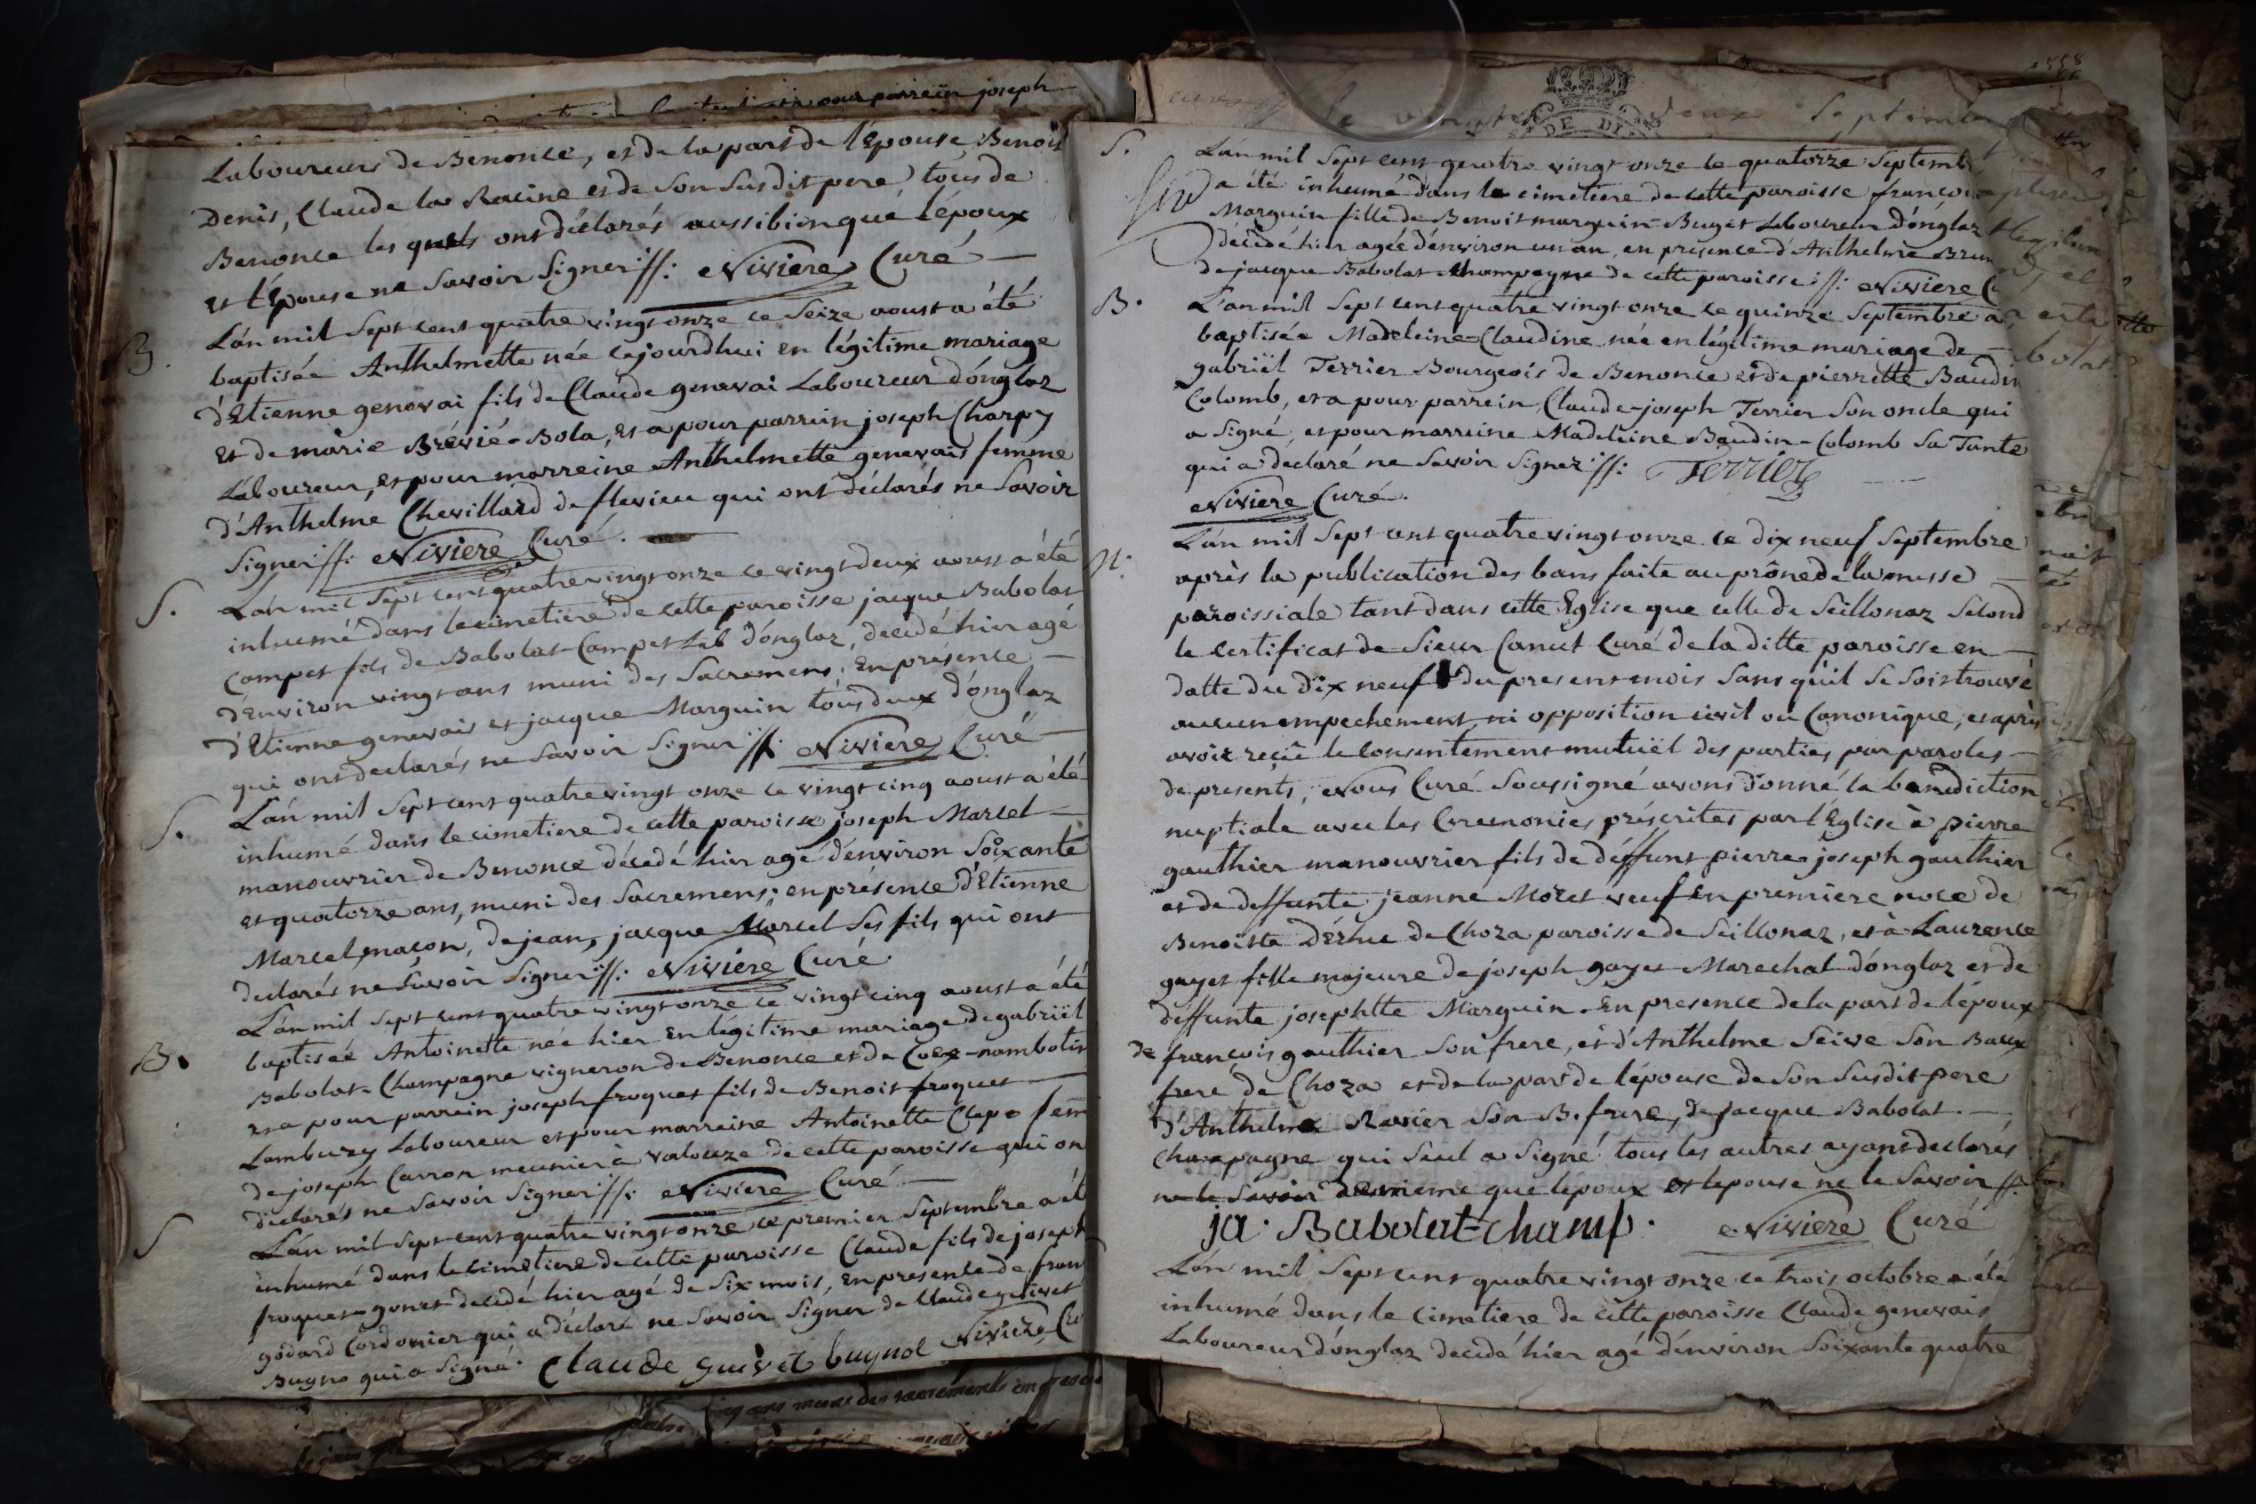 pour parrein joseph
Laboureurs de Benonce, et de la part de l'Epouse Benoit
Denis, Claude la Racine et de son susdit pere tous de
Benonce les quels ont déclarés aussi bien que l'époux
et l'Epouse ne savoir signer ·/: Niviere Curé
B. L'an mil sept cent quatre vingt onze ce seize aoust a été
baptisée Anthelmette née cejourdhui en légitime mariage
d'Etienne genevai fils de Claude genevai Laboureur d'onglaz
et de marie Brévié-Bola, et a pour parrein joseph Charpy
Laboureur, et pour marreine Anthelmette genevais femme
d'Anthelme Chevillard de flevieu qui ont déclarés ne savoir
signer ·/: Niviere Curé.
S. L'an mil sept cent quatre vingt onze ce vingt deux aoust a été
inhumé dans le cimetiere de cette paroisse jacque Babolat
Campet fils de Babolat-Campet Lab d'onglaz, décédé hier agé
d'Environ vingt ans muni des Sacremens, En présence
d'Etienne genevais et jacque Marguin tous deux d'onglaz
qui ont declarés ne savoir signer ·/: Niviere Curé
S. L'an mil sept cent quatre vingt onze ce vingt cinq aoust a été
inhumé dans le cimetiere de cette paroisse joseph Marcel
manouvrier de Benonce décédé hier agé d'environ soixante
et quatorze ans, muni des Sacremens; en présence d'Etienne
Marcel maçon, de jean, jacque Marcel ses fils qui ont
declarés ne savoir signer ·/: Niviere Curé.
B. L'an mil sept cent quatre vingt onze ce vingt cinq aoust a été
baptisée Antoinette née hier en légitime mariage de gabriël
Babolat-Champagne vigneron de Benonce et de
et a pour parrein joseph froquet fils de Benoit froquet
Lambury Laboureur et pour marreine Antoinette Clepe fem
de joseph Carron meunier à valouze de cette paroisse qui on
déclarés ne savoir signer ·/: Niviere Curé
S L'an mil sept cent quatre vingt onze ce premier septembre a ét
inhumé dans le cimetiere de cette paroisse Claude fils de joseph
froquet-gonet decédé hier agé de six mois, En presence de fran
godard Cordonier qui a déclaré ne savoir signer de Claude guivet
Bugno qui a signé. Claude guivet bugnol Niviere Cu
S. L'an mil sept cent quatre vingt onze le quatorze septemb
a été inhumé dans le cimetiere de cette paroisse françoi
Marguin fille de Benoit marguin-Buget Laboureur d'onglaz
décédé hier agée d'environ un an, en présence d'Anthelme Brun
de jacque Babolat-Champagne de cette paroisse ·/: Niviere C
B. L'an mil sept cent quatre vingt onze ce quinze septembre a
baptisée Madeleine-Claudine née en légitime mariage de
gabriël Terrier Bourgeois de Benonce et de pierrette Baudin
Colomb, et a pour parrein Claude-joseph Terrier son oncle qui
a signé, et pour marreine Madeleine Baudin-Colomb sa Tante
qui a declaré ne savoir signer ·/: Terrier
Niviere Curé.
M. L'an mil sept cent quatre vingt onze ce dix neuf septembre
après la publication des bans faite au prône de la messe
paroissiale tant dans cette Eglise que celle de Seillonaz selond
le certificat de Sieur Canut Curé de la ditte paroisse en
datte du dix neuf du present mois sans qu'il se soit trouvé
aucun empechement ni opposition civil ou Canonique, et après
avoir reçû le consentement mutuël des parties par paroles
de presents, Nous Curé soussigné avons donné la benediction
nuptiale avec les Ceremonies préscrites par l'Eglise à pierre
gauthier manouvrier fils de déffunt pierre-joseph gauthier
et de deffunte jeanne Moret veuf en premiere noce de
Benoiste d'Erme de Choza paroisse de Seillonaz, et à Laurence
gayet fille majeure de joseph gayet Marechal d'onglaz et de
deffunte josephte Marguin. En presence de la part de l'époux
de françois gauthier son frere, et d'Anthelme Seive son Baux
frere de Choza et de la part de l'épouse de son susdit pere
d'Anthelme Ravier son B. frere, de jacque Babolat.
Champagne qui seul a signé tous les autres ayant declarés
ne le savoir de meme que l'époux et l'epouse ne le savoir ·/:
ja. Babolat-champ. Niviere Curé
L'an mil sept cent quatre vingt onze ce trois octobre a été
inhumé dans le cimetiere de cette paroisse Claude genevais
Laboureur d'onglaz decédé hier agé d'environ soixante quatre